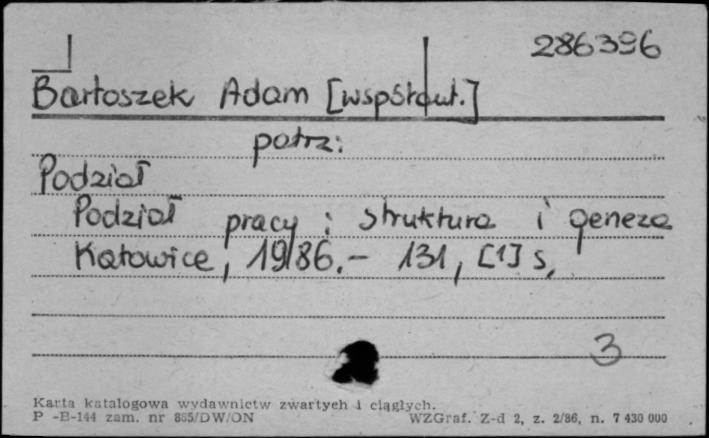 286396
Bartoszek Adam [współaut.]
patrz:
Podział
Podział pracy : struktura i geneza
Katowice, 1986.- 131, [1] s.
3
Karta katalogowa wydawnictw zwartych i ciągłych.
P -B-144 zam. nr 885/DW/ON WZGraf. Z-d 2, z. 2/86, n. 7 430 000